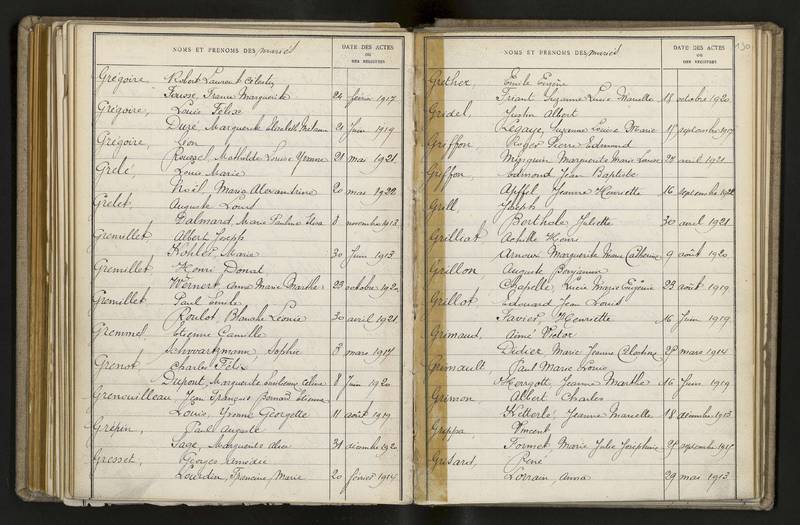 NOMS ET PRENOMS DES mariés
DATE DES ACTES
OU
DES REGISTRES
Grégoire, Robert Laurent Célestin
Fousse, France Marguerite 24 février 1917
Grégoire, Louis Félix
Duzé, Marguerite Elisabeth 21 Juin 1919
Grégoire, Léon
Roussel, Mathilde Louise Yvonne 21 mai 1921
Grelé, Louis Marie
Noël, Maria Alexandrine 20 mai 1922
Grelet, Auguste Louis
Galmard, Marie Pauline 8 novembre 1913
Gremillet, Albert Joseph
Kohler, Marie 30 Juin 1913
Gremillet, Henri Donat
Wernert, Anna Marie Marthe 23 octobre 1920
Gremillet, Paul Emile
Roulot, Blanche Léonie 30 avril 1921
Gremmel, Etienne Camille
Schwartzmann, Sophie 8 mars 1917
Grenot, Charles Félix
Dupont, Marguerite Emilienne Celina 8 Juin 1920
Grenouilleau, Jean François Bernard Etienne
Louis, Yvonne Georgette 11 août 1919
Grépin, Paul Auguste
Sage, Marguerite Alice 31 décembre 1920
Grosset, Georges
Lourdin, Francine Marie 20 février 1914
NOMS ET PRENOMS DES mariés
DATE DES ACTES
OU
DES REGISTRES
130
Grether, Emile Eugène
Friant, Suzanne Lucie Marcelle 18 octobre 1920
Gridel, Justin Albert
Legaye, Suzanne Louise Marie 15 septembre 1917
Griffon, Roger Pierre Edmond
Marguerite Marie Louise 28 avril 1921
Griffon, Edmond Jean Baptiste
Apffel, Jeanne Henriette 16 septembre 1922
Grill, Joseph
Berthole, Juliette 30 avril 1921
Grilliat, Achille Henri
Arnoux, Marguerite Marie Catherine 9 août 1920
Grillon, Auguste Benjamin
Chapelle, Lucie Marie Eugénie 23 août 1919
Grillot, Edouard Jean Louis
Favier, Henriette 16 Juin 1919
Grimaud, Aimé Victor
Didier, Marie Jeanne Célestine 28 mars 1914
Grimault, Paul Marie Louis
Morgott, Jeanne Marthe 16 Juin 1919
Grimon, Albert Charles
Ketterlé, Jeanne Marcelle 18 décembre 1913
Grippa, Vincent
Formet, Marie Julie Joséphine 25 septembre 1915
Grisard, René
Lorrain, Anna 29 mai 1913